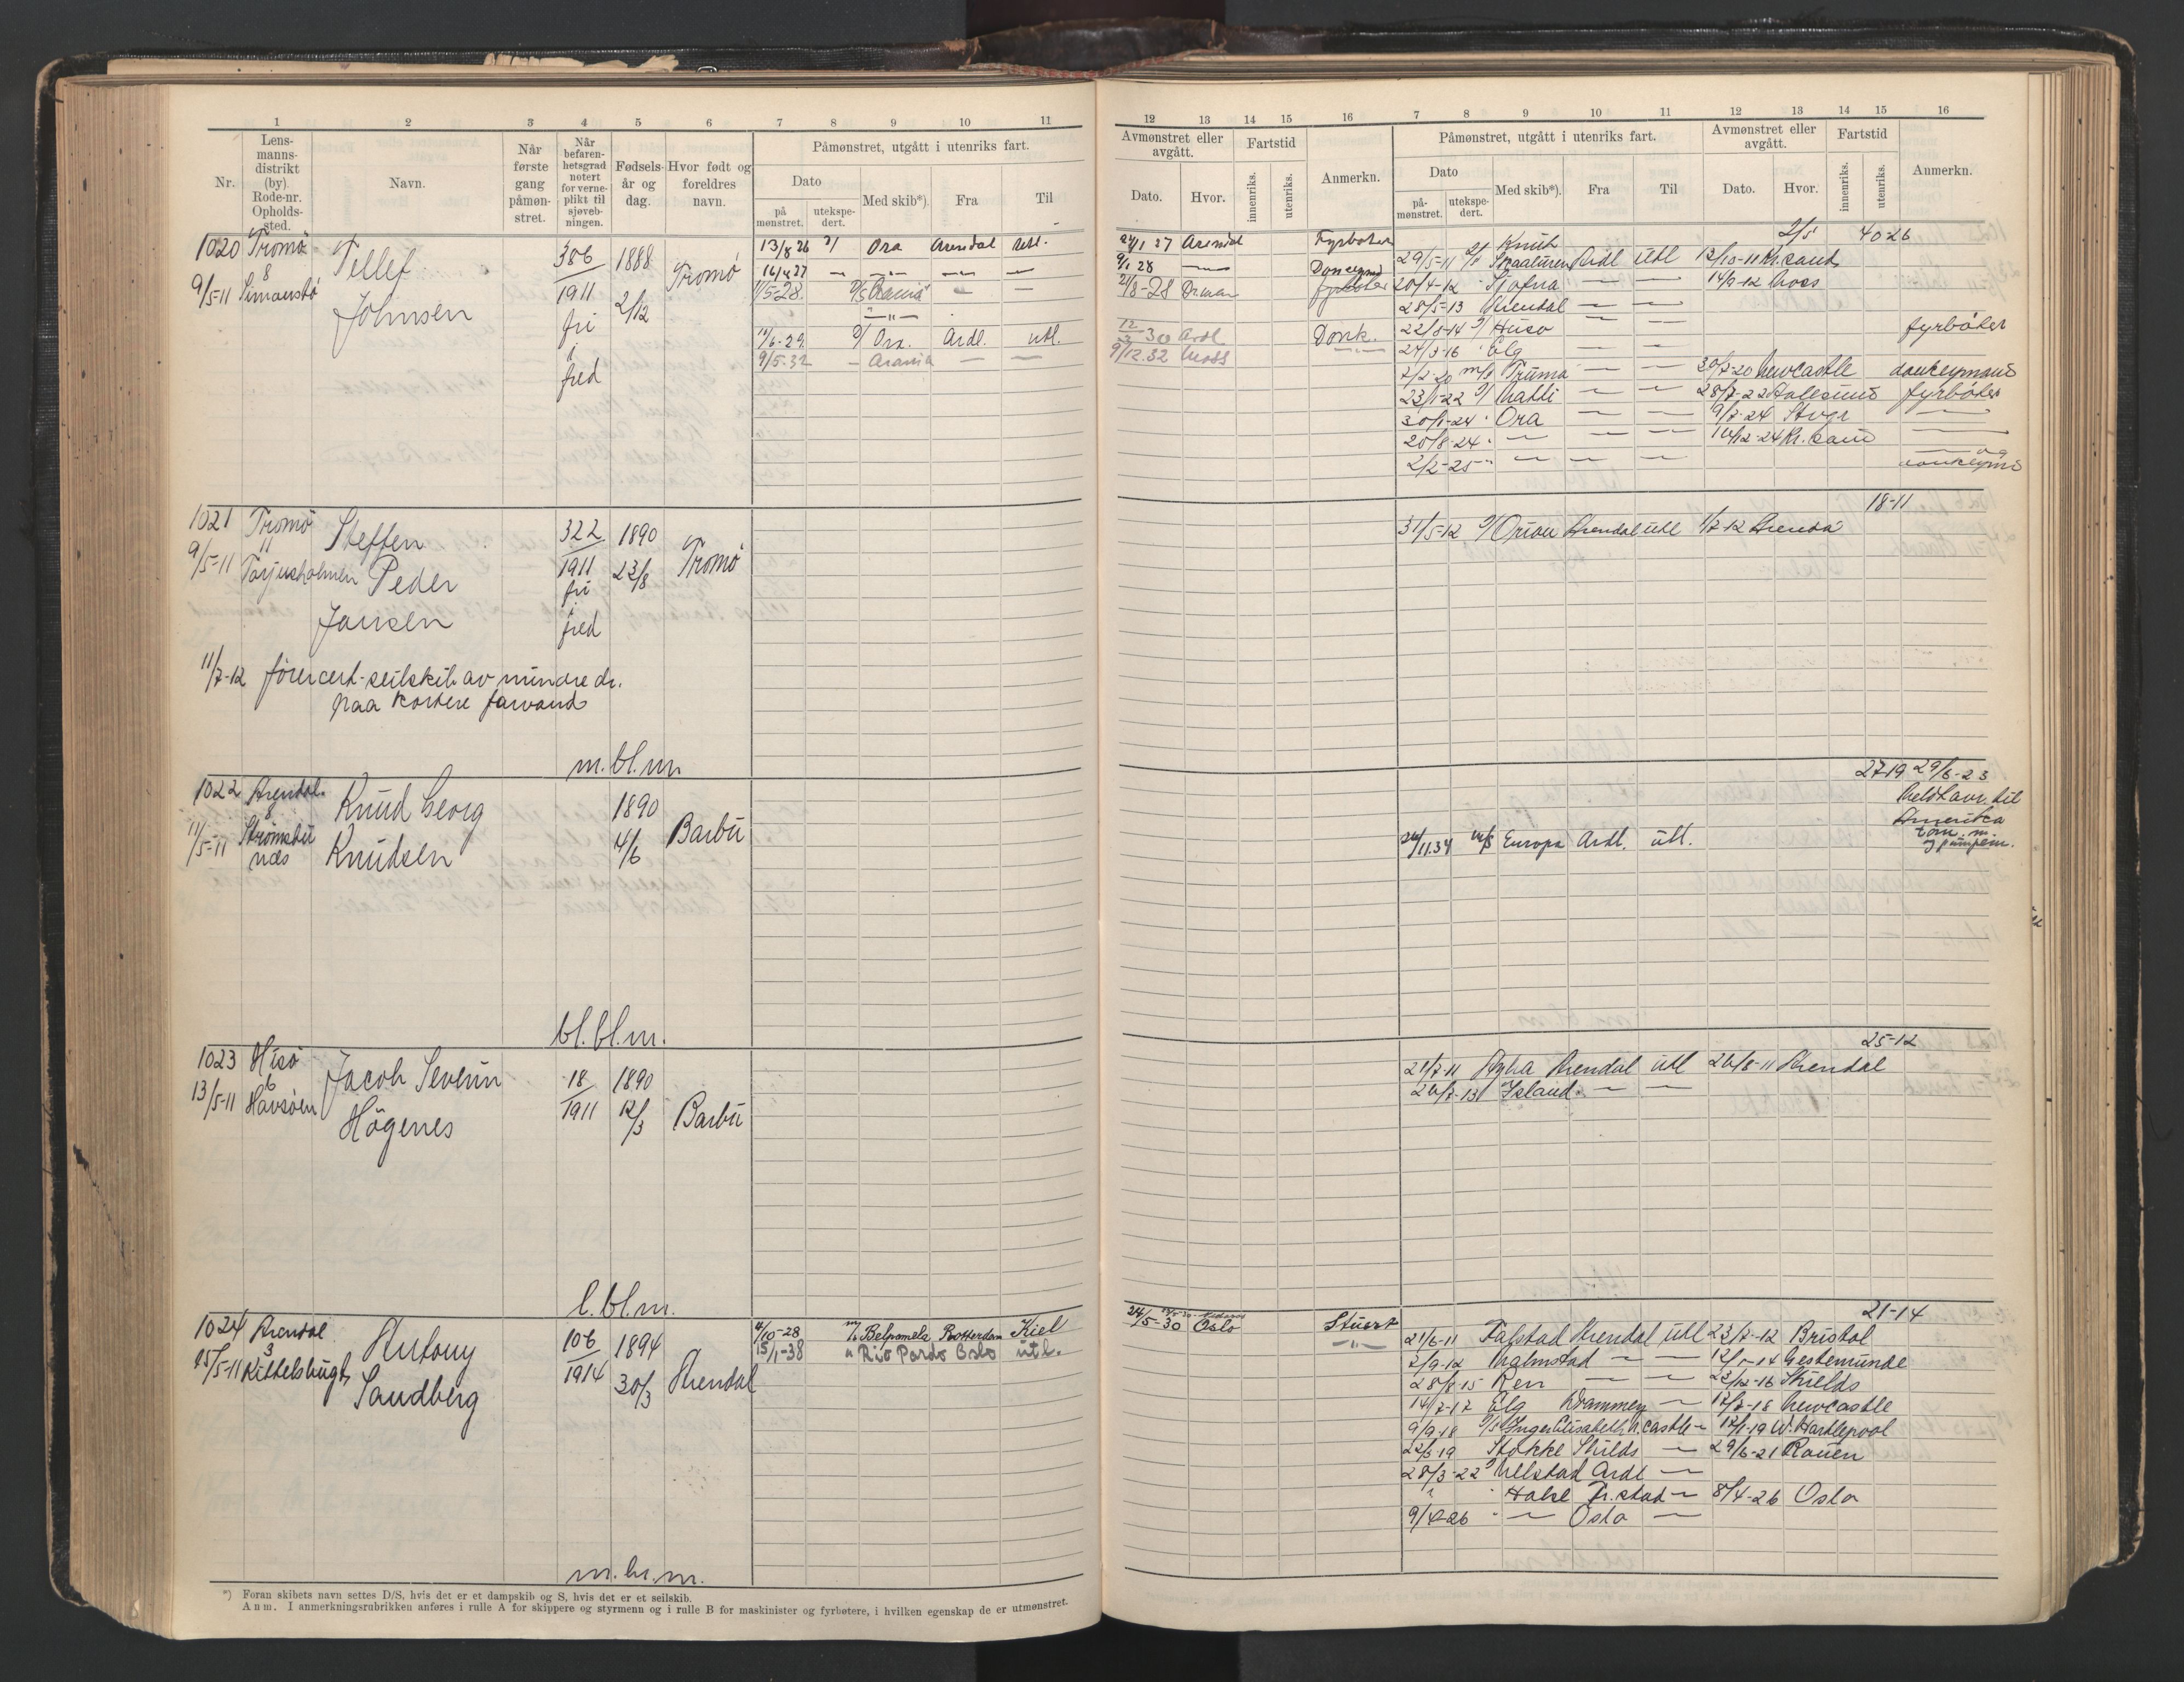 1 2 3 4 5 6 7 8 9 10 11
Nr.
Lens-
manns-
distrikt
(by)
Rode-nr.
Opholds-
sted.
Navn.
Når
første
gang
påmøn-
stret.
Når
befaren-
hetsgrad
notert
for verne-
plikt til
sjøveb-
ningen.
Fødsels-
år og
dag.
Hvor født og
foreldres
navn.
Påmønstret, utgått i utenriks fart.
Dato
på
mønstret.
utekspe-
dert.
Med skib*).
Fra
Til
1020 Tromö 8 Simonstö
9/5-11
Tellef
Johnsen
386
1911
fri
i
fred
1888
2/12
Tromö
13/8 26 Ora Arendal utl.
16/4 27 — — — —
1/5-28. Arania — —
11/6-29. Ora. Ardl. utl.
9/5-32 — Arania — —
1021 Tromö 11 Torjusholmen
9/5-11
Steffen
Peder
Jansen
322
1911
fri
i
fred
1890
23/8
Tromö
11/7-12 förercert-seilskib av mindre dr.
paa kortere farvand
m.bl.m.
1022 Arendal 8 Strömsbu
11/5-11
Knud Georg
Knudsen
1890
4/6
Barbu
bl.bl.m.
1023 Hisö 6 Havsöen
13/5-11
Jacob Severin
Högenes
18
1911
1890
12/3
Barbu
l.bl.m.
1024 Arendal 3 Kittelsbugt
15/5-11
Antony
Sandberg
106
1914
1894
30/3
Arendal
4/10-28 Belpamela Rotterdam Kiel
15/1-38 " Rio Pardo Oslo utl.
m.br.m.
*) Foran skibets navn settes D/S, hvis det er et dampskib og S, hvis det er et seilskib.
Anm. I anmerkningsrubrikken anføres i rulle A for skippere og styrmenn og i rulle B for maskinister og fyrbøtere, i hvilken egenskap de er utmønstret.
12 13 14 15 16 7 8 9 10 11 12 13 14 15 16
Avmønstret eller
avgått.
Dato.
Hvor.
Fartstid
innenriks.
utenriks.
Anmerkn.
Påmønstret, utgått i utenriks fart.
Dato
på-
mønstret.
utekspe-
dert.
Med skib*).
Fra
Til
Avmønstret eller
avgått.
Dato.
Hvor.
Fartstid
innenriks.
utenriks.
Anmerkn.
24/1 27 Arendal Fyrböter
9/1 28 —
21/8-28
12/3 30 Ardl Donk.
9/12.32 Moss —"—
2/5 4026
29/5-11 Knut Skaaluren Ardl Utl 13/10-11 Kr.sand
20/4-12 Sjofna — — 14/9-12 Moss
28/5-13 Arendal — —
22/8-14 Huso — — fyrböter
24/3-16 Elg — —
2/2-20 m/s Truma — — 30/7-20 Newcastle donkeymand
23/1-22 Matti — — 28/7-22 Aalesund fyrböter
30/1-24 Ora — — 9/7-24 Stvgr —
20/8-24 — — — 16/12-24 Kr.sand —
2/2-25 — — — — og
donkeymd
18-11
31/5-12 Orion Arendal utl 1/7-12 Arendal
27-19 29/6-23
Meldt avr. til
Amerika
tøm.m.
og pumpem.
24/11.34 m/s Europa Ardl. utl.
25-12
21/7-11 Agha Arendal utl 26/8-11 Arendal
26/7-13 Island — —
21-14
24/5-30 Oslo Stuert
—"—
21/6-11 Falstad Arendal Utl 23/7-12 Bristol
2/9-12 Malmstad — — Gestemünde
28/8-15 Ren — — 23/12-16 Shields
14/7-17 Elg — 12/7-18 Newcastle
9/9-18 Inger Elisabeth N.castle — 12/1-19 W.Hartlepool
22/3 19 Stokke Shilds — 29/6-21 Rouen
28/3-22 Ardl —
Halse Fr.stad — 8/4-26 Oslo
9/4-26 — Oslo —